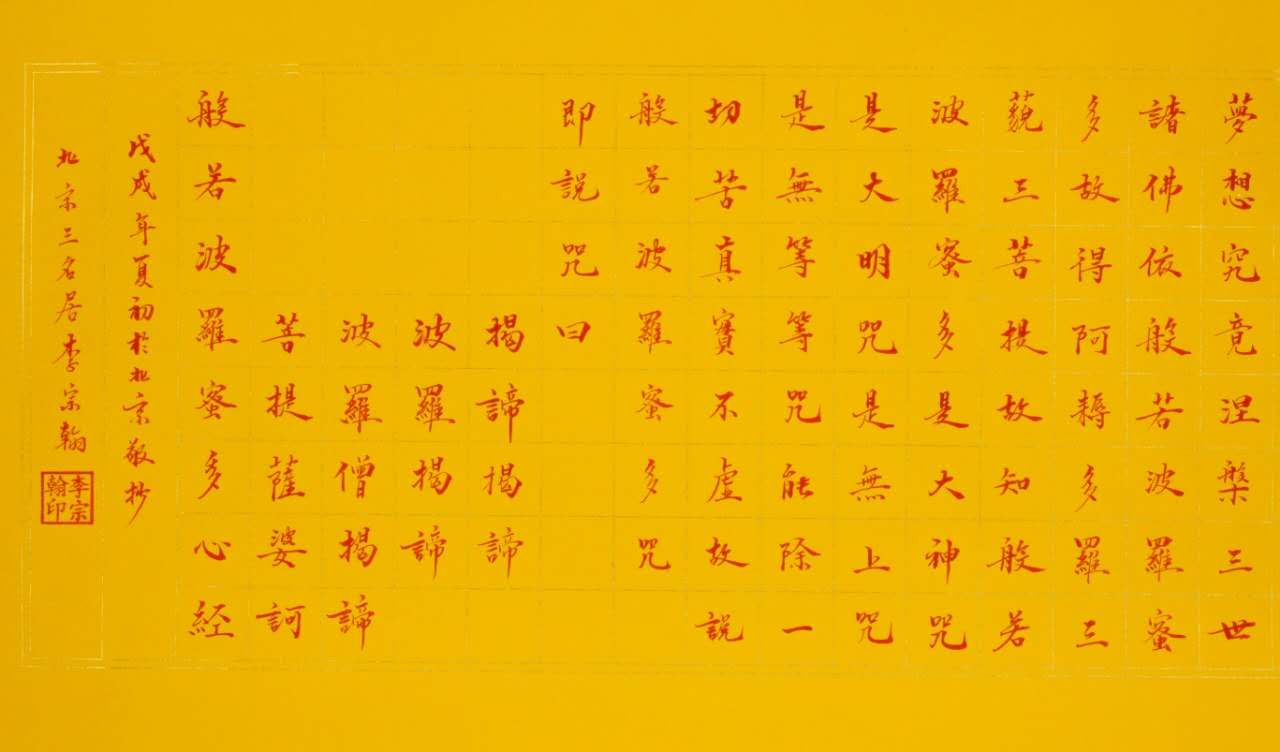 夢想究竟涅槃三世
諸佛依般若波羅蜜
多故得阿耨多羅三
藐三菩提故知般若
波羅蜜多是大神咒
是大明咒是無上咒
是無等等咒能除一
切苦真實不虛故說
般若波羅蜜多咒
即說咒曰
揭諦揭諦
波羅揭諦
波羅僧揭諦
菩提薩婆訶
般若波羅蜜多心経
戊戌年夏初於北京敬抄
北京三名居李宗翰
李宗翰印